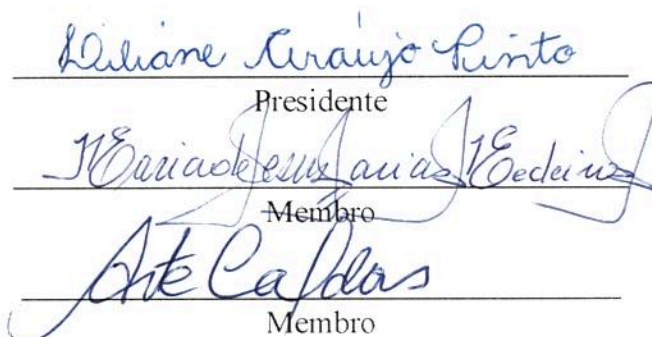 Liliane Araújo Pinto
Presidente
Maria de Jesus Farias Medeiros
Membro
Caldas
Membro